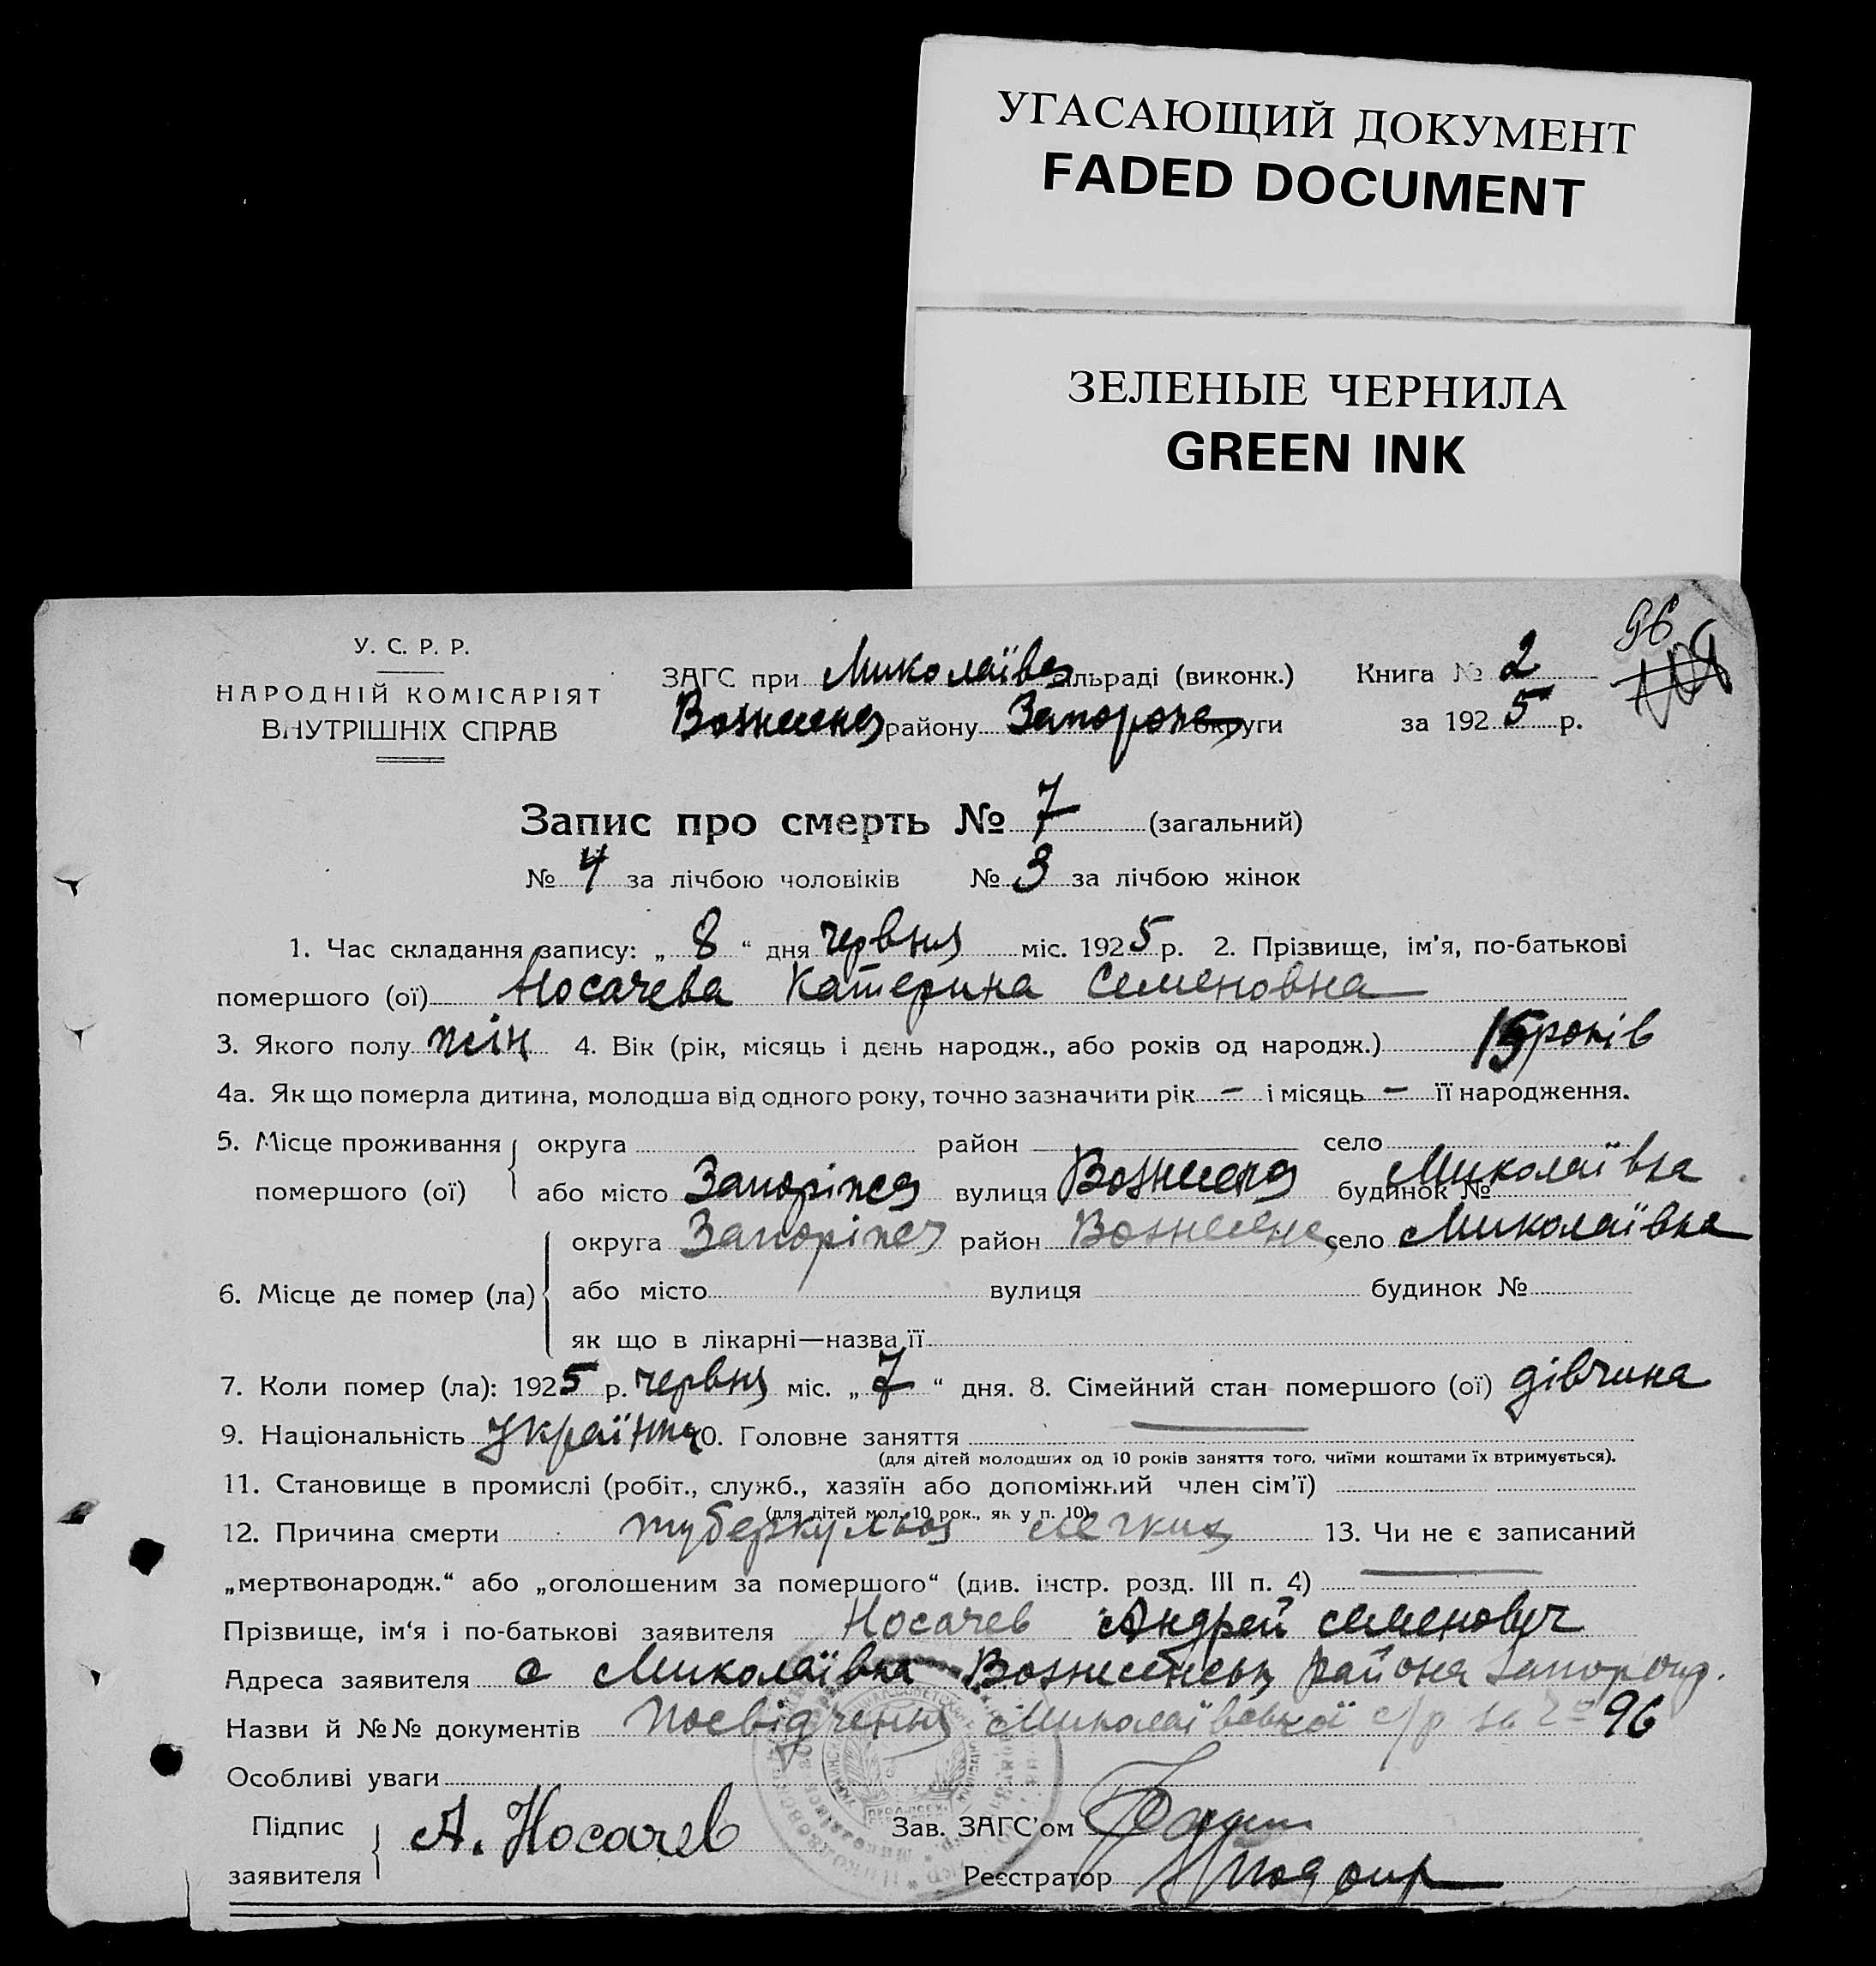 УГАСАЮЩИЙ ДОКУМЕНТ
FADED DOCUMENT
ЗЕЛЕНЫЕ ЧЕРНИЛА
GREEN INK
96
У. С. Р. Р.
НАРОДНІЙ КОМІСАРІЯТ
ВНУТРІШНІХ СПРАВ
ЗАГС при Миколаївс ільраді (виконк.) Книга № 2
Вознесенс району Запорож округи за 1925 р.
Запис про смерть № 7 (загальний)
№ 4 за лічбою чоловіків № 3 за лічбою жінок
1. Час складання запису: „ 8 “ дня червня міс. 1925 р. 2. Прізвище, ім'я, по-батькові
помершого (ої) Носачева Катерина Семеновна
3. Якого полу жін 4. Вік (рік, місяць і день народж., або років од народж.) 15 років
4а. Як що померла дитина, молодша від одного року, точно зазначити рік – і місяць – її народження.
5. Місце проживання округа район село Миколаївка
помершого (ої) або місто Запоріж вулиця Вознесенс будинок №
округа Запоріж район Вознесенс село Миколаївка
6. Місце де помер (ла) або місто вулиця будинок №
як що в лікарні—назва її
7. Коли помер (ла): 1925 р. червня міс. „ 7 “ дня. 8. Сімейний стан помершого (ої) дівчина
9. Національність Українка 10. Головне заняття
(для дітей молодших од 10 років заняття того, чиїми коштами їх втримується).
11. Становище в промислі (робіт., служб., хазяїн або допоміжний член сім'ї)
(для дітей мол. 10 рок., як у п. 10)
12. Причина смерти туберкульоз легких 13. Чи не є записаний
„мертвонародж.“ або „оголошеним за помершого“ (див. інстр. розд. III п. 4)
Прізвище, ім'я і по-батькові заявителя Носачев Андрей Семенович
Адреса заявителя с Миколаївка Вознесенськ района Запор окр.
Назви й №№ документів Посвідчення Миколаївської с/р за № 96
Особливі уваги
Підпис
заявителя А. Носачев Зав. ЗАГС'ом
Реєстратор